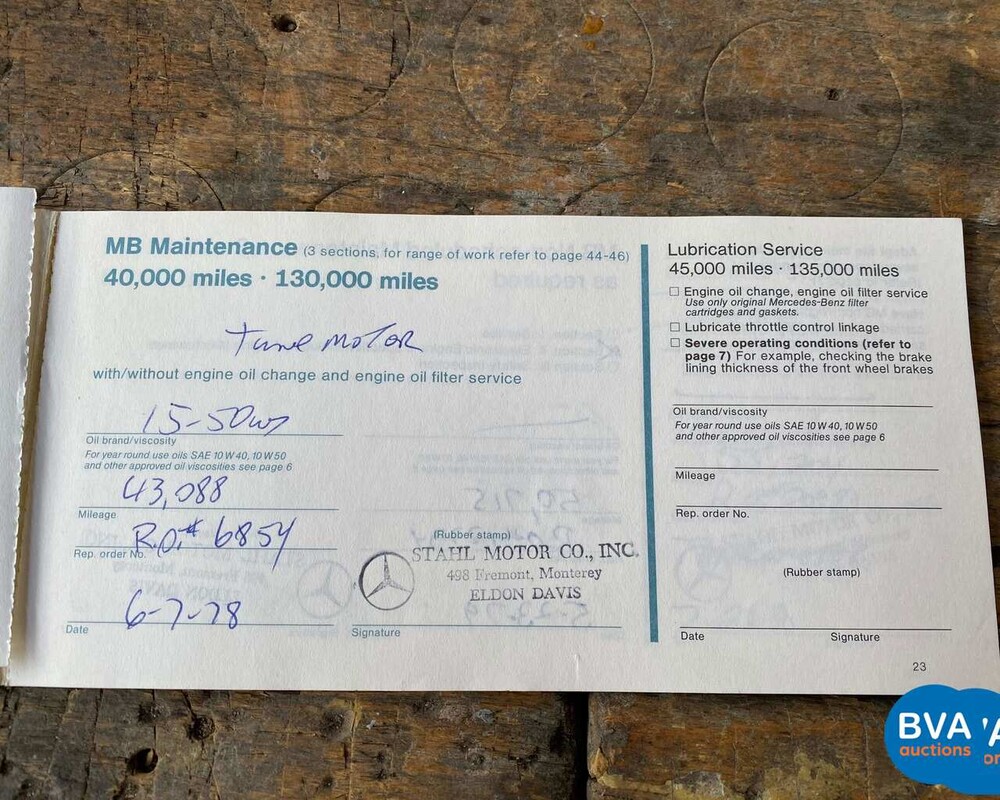 MB Maintenance (3 sections, for range of work refer to page 44-46)
40,000 miles · 130,000 miles
Tune Motor
with/without engine oil change and engine oil filter service
15-50w
Oil brand/viscosity
For year round use oils SAE 10 W 40, 10 W 50
and other approved oil viscosities see page 6
43,088
Mileage
R.O.# 6854
Rep. order No.
(Rubber stamp)
STAHL MOTOR CO., INC.
498 Fremont, Monterey
ELDON DAVIS
6-7-78
Date
Signature
Lubrication Service
45,000 miles · 135,000 miles
☐ Engine oil change, engine oil filter service
Use only original Mercedes-Benz filter
cartridges and gaskets.
☐ Lubricate throttle control linkage
☐ Severe operating conditions (refer to
page 7) For example, checking the brake
lining thickness of the front wheel brakes
Oil brand/viscosity
For year round use oils SAE 10 W 40, 10 W 50
and other approved oil viscosities see page 6
Mileage
Rep. order No.
(Rubber stamp)
Date
Signature
23
BVA
auctions